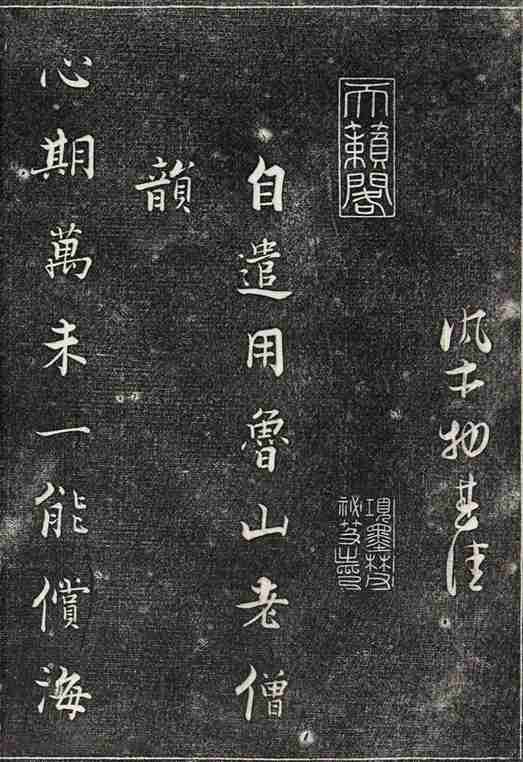 物
天籟閣
項墨林父
祕笈之印
自遣用魯山老僧
韻
心期萬未一能償海